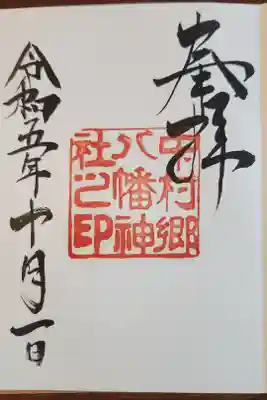 奉拝
中村郷
八幡神
社之印
令和五年十月一日